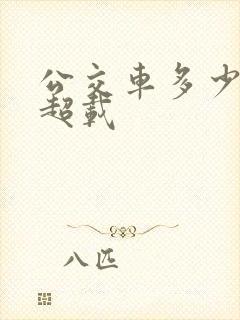 公交車多少
超載
八匹